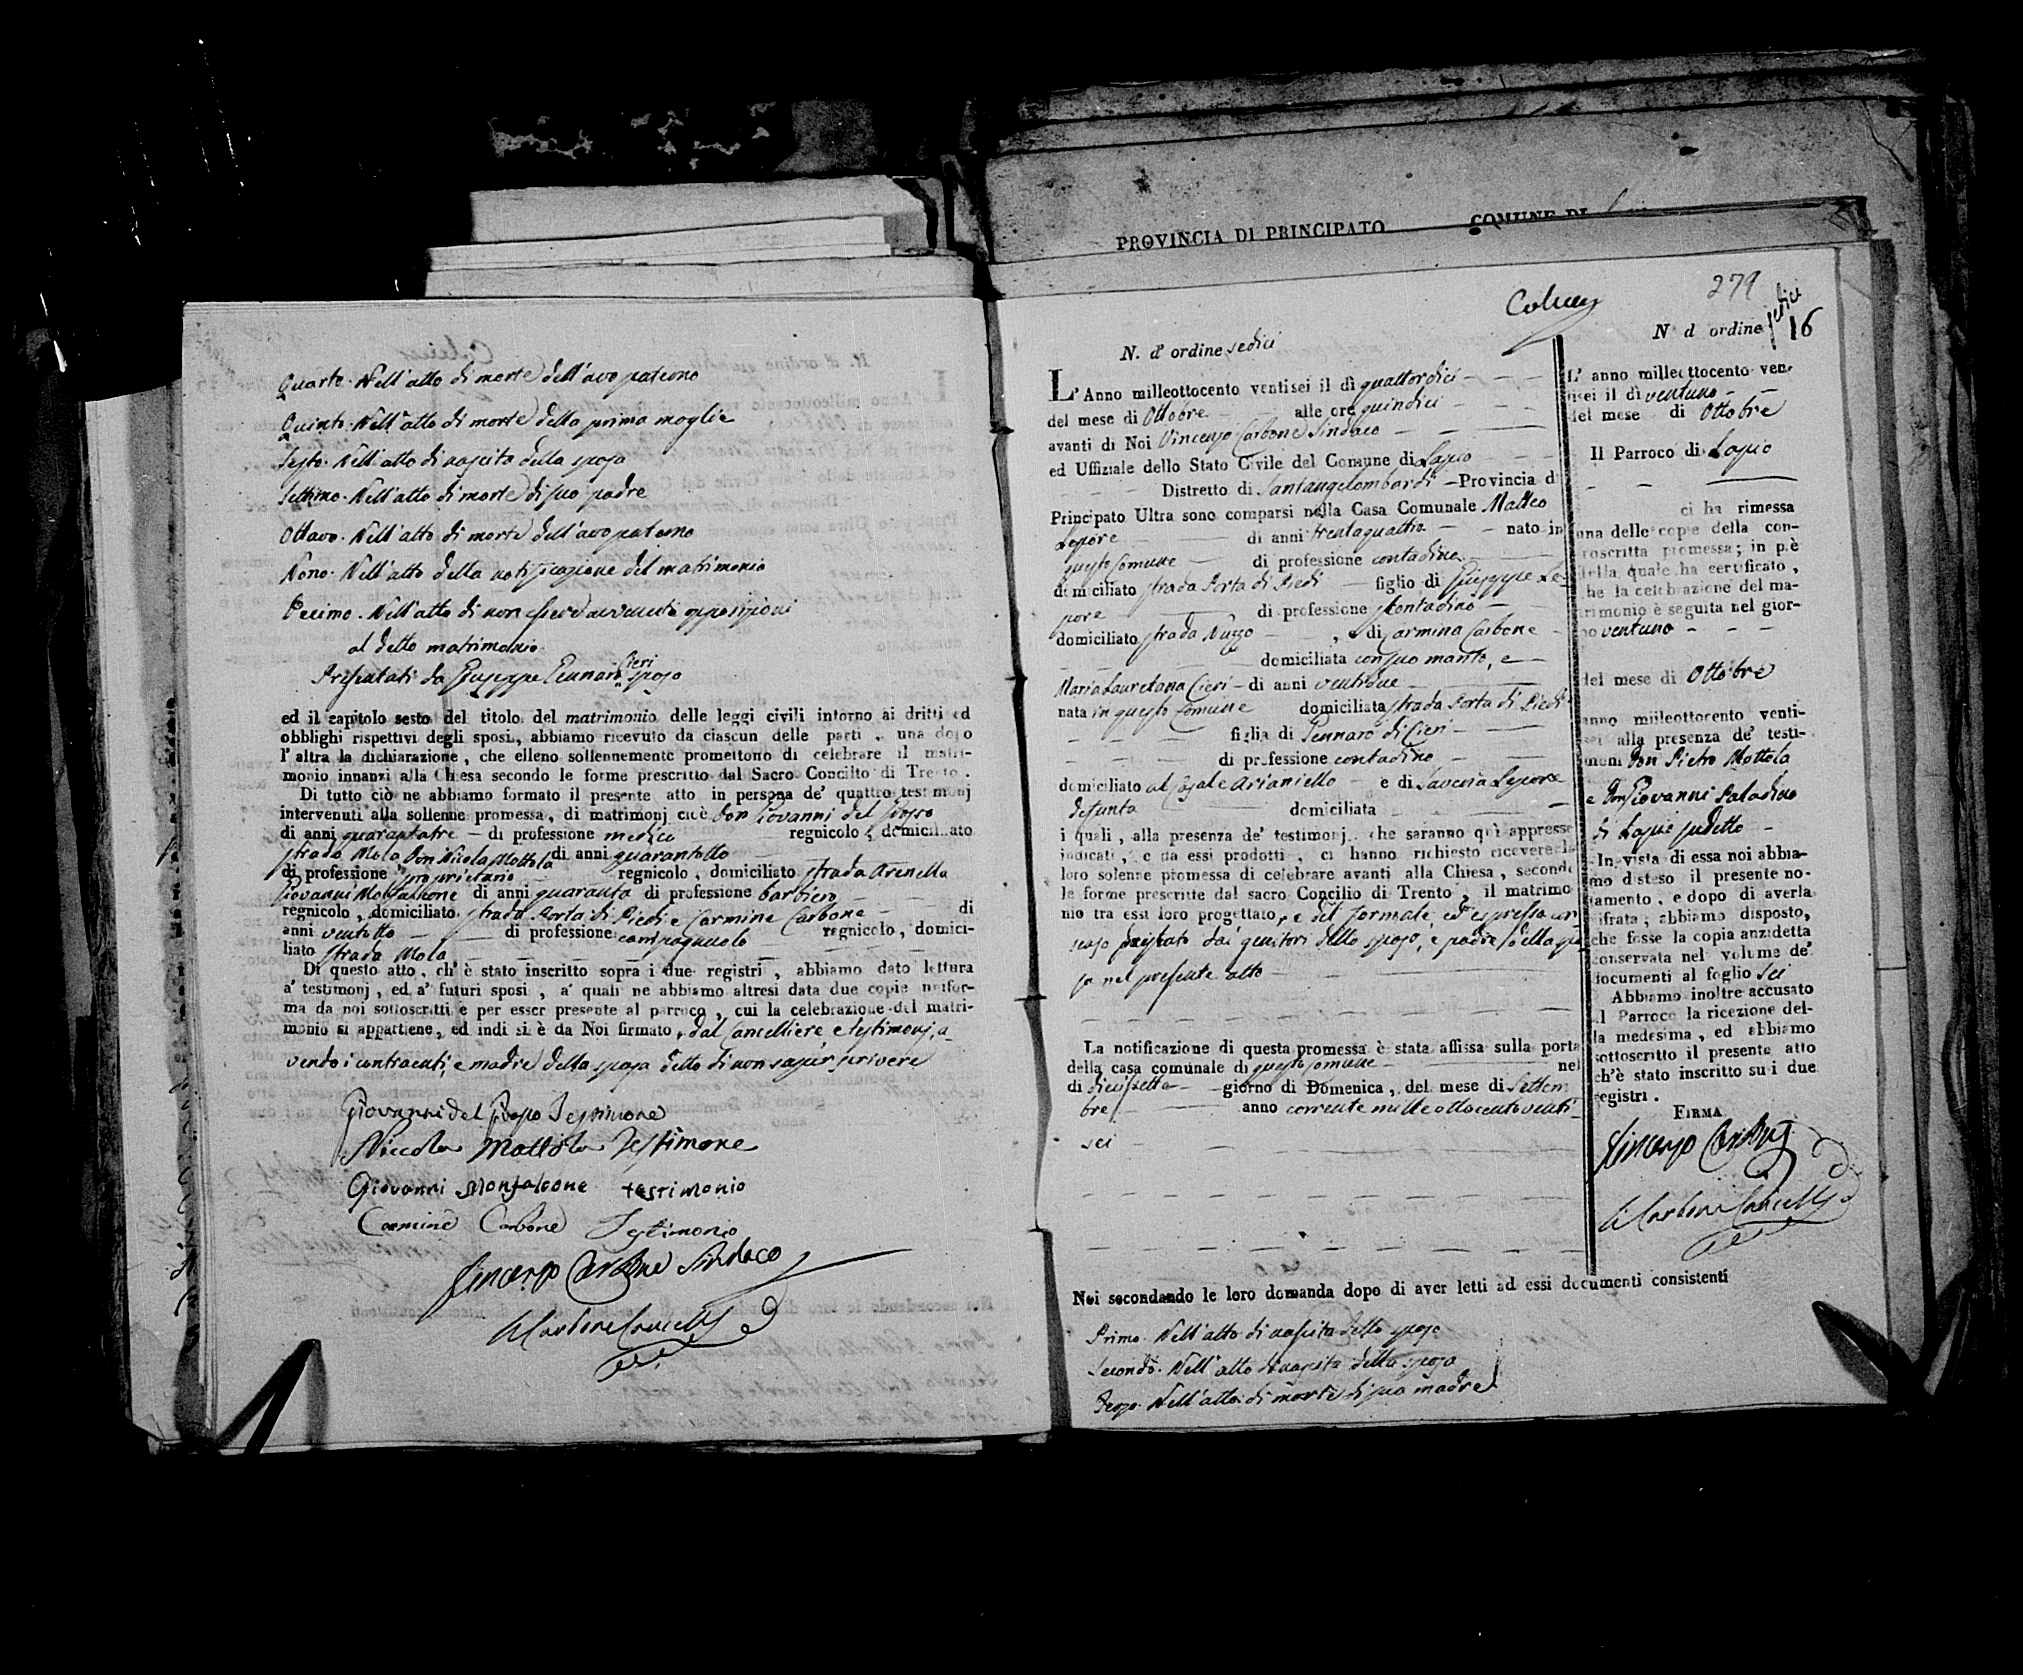 Quarto. Nell'atto di morte dell'avo paterno
Quinto. Nell'atto di morte della prima moglie
Sesto. Nell'atto di nascita della sposa
Settimo. Nell'atto di morte di suo padre
Ottavo. Nell'atto di morte dell'avo paterno
Nono. Nell'atto della notificazione del matrimonio
Decimo. Nell'atto di non essere avvenuti opposizioni
al detto matrimonio.
Presentati da Giuseppe Cieri sposo
ed il capitolo sesto del titolo del matrimonio delle leggi civili intorno ai dritti ed
obblighi rispettivi degli sposi, abbiamo ricevuto da ciascun delle parti, una dopo
l'altra la dichiarazione, che elleno sollennemente promettono di celebrare il matri-
monio innanzi alla Chiesa secondo le forme prescritto dal Sacro Concilto di Trento.
Di tutto ciò ne abbiamo formato il presente atto in persona de' quattro testimonj
intervenuti alla sollenne promessa, di matrimonj cioè Don Giovanni del Grosso
di anni quarantatre - di professione medico regnicolo, domiciliato
strada Mola Don Nicola Mottola di anni quarantotto
di professione proprietario regnicolo, domiciliato strada Arenella
Giovanni Monfalcone di anni quaranta di professione barbiero
regnicolo, domiciliato strada Porta di Piedi e Carmine Carbone di
anni ventotto di professione campagnuolo regnicolo, domici-
liato strada Mola
Di questo atto, ch'è stato inscritto sopra i due registri, abbiamo dato lettura
a' testimonj, ed a' futuri sposi, a' quali ne abbiamo altresì data due copie unifor-
ma da noi sottoscritti e per esser presente al parroco, cui la celebrazione del matri-
monio si appartiene, ed indi si è da Noi firmato, dal Cancelliere e testimonj, a-
vendo i contraenti, e madre della sposa detto di non saper scrivere
Giovanni del Grosso Testimone
Niccola Mottola Testimone
Giovanni Monfalcone testimonio
Carmine Carbone Testimonio
Vincenzo Carbone Sindaco
PROVINCIA DI PRINCIPATO COMUNE DI
279
N. d'ordine sedici
L'Anno milleottocento ventisei il dì quattordici
del mese di Ottobre alle ore quindici
avanti di Noi Vincenzo Carbone Sindaco
ed Uffiziale dello Stato Civile del Comune di Lapio
Distretto di Santangelombardi - Provincia di
Principato Ultra sono comparsi nella Casa Comunale Matteo
Lepore di anni trentaquattro nato in
questo Comune di professione contadino
domiciliato strada Porta di Piedi figlio di Giuseppe Le-
pore di professione contadino
domiciliato strada Nuzzo, e di Carmina Carbone
domiciliata con suo marito, e
Maria Lauretana Cieri - di anni ventidue
nata in questo Comune domiciliata strada Porta di Piedi
figlia di Gennaro di Cieri
di professione contadino
domiciliato al Casale Arianiello e di Saveria Lepore
defunta domiciliata
i quali, alla presenza de' testimonj, che saranno quì appresso
indicati, e da essi prodotti, ci hanno richiesto ricevere la
loro solenne promessa di celebrare avanti alla Chiesa, secondo
le forme prescritte dal sacro Concilio di Trento, il matrimo
nio tra essi loro progettato, e del formale, ed espresso con
senso prestato dai genitori dello sposo, e padre della spo
sa nel presente atto
La notificazione di questa promessa è stata affissa sulla porta
della casa comunale di questo comune nel
dì diciassette giorno di Domenica, del mese di Settem
bre anno corrente mille ottocento venti
sei
Noi secondando le loro domanda dopo di aver letti ad essi documenti consistenti
Primo. Nell'atto di nascita dello sposo
Secondo. Nell'atto di nascita della sposa
Terzo. Nell'atto di morte di sua madre
N d ordine sedici 16
L' anno milleottocento ven-
tisei il dì ventuno
del mese di Ottobre
Il Parroco di Lapio
ci ha rimessa
una delle copie della con-
troscritta promessa; in piè
della quale ha certificato,
che la celebrazione del ma-
trimonio è seguita nel gior-
no ventuno
del mese di Ottobre
anno milleottocento venti-
sei alla presenza de' testi-
moni Don Pietro Mottola
e Don Giovanni Paladino
di Lapio sudetto
In vista di essa noi abbia-
mo disteso il presente no-
tamento, e dopo di averla
cifrata, abbiamo disposto,
che fosse la copia anzidetta
conservata nel volume de'
documenti al foglio sei
Abbiamo inoltre accusato
al Parroco la ricezione del-
la medesima, ed abbiamo
sottoscritto il presente atto
ch'è stato inscritto su i due
registri.
FIRMA
Vincenzo Carbone